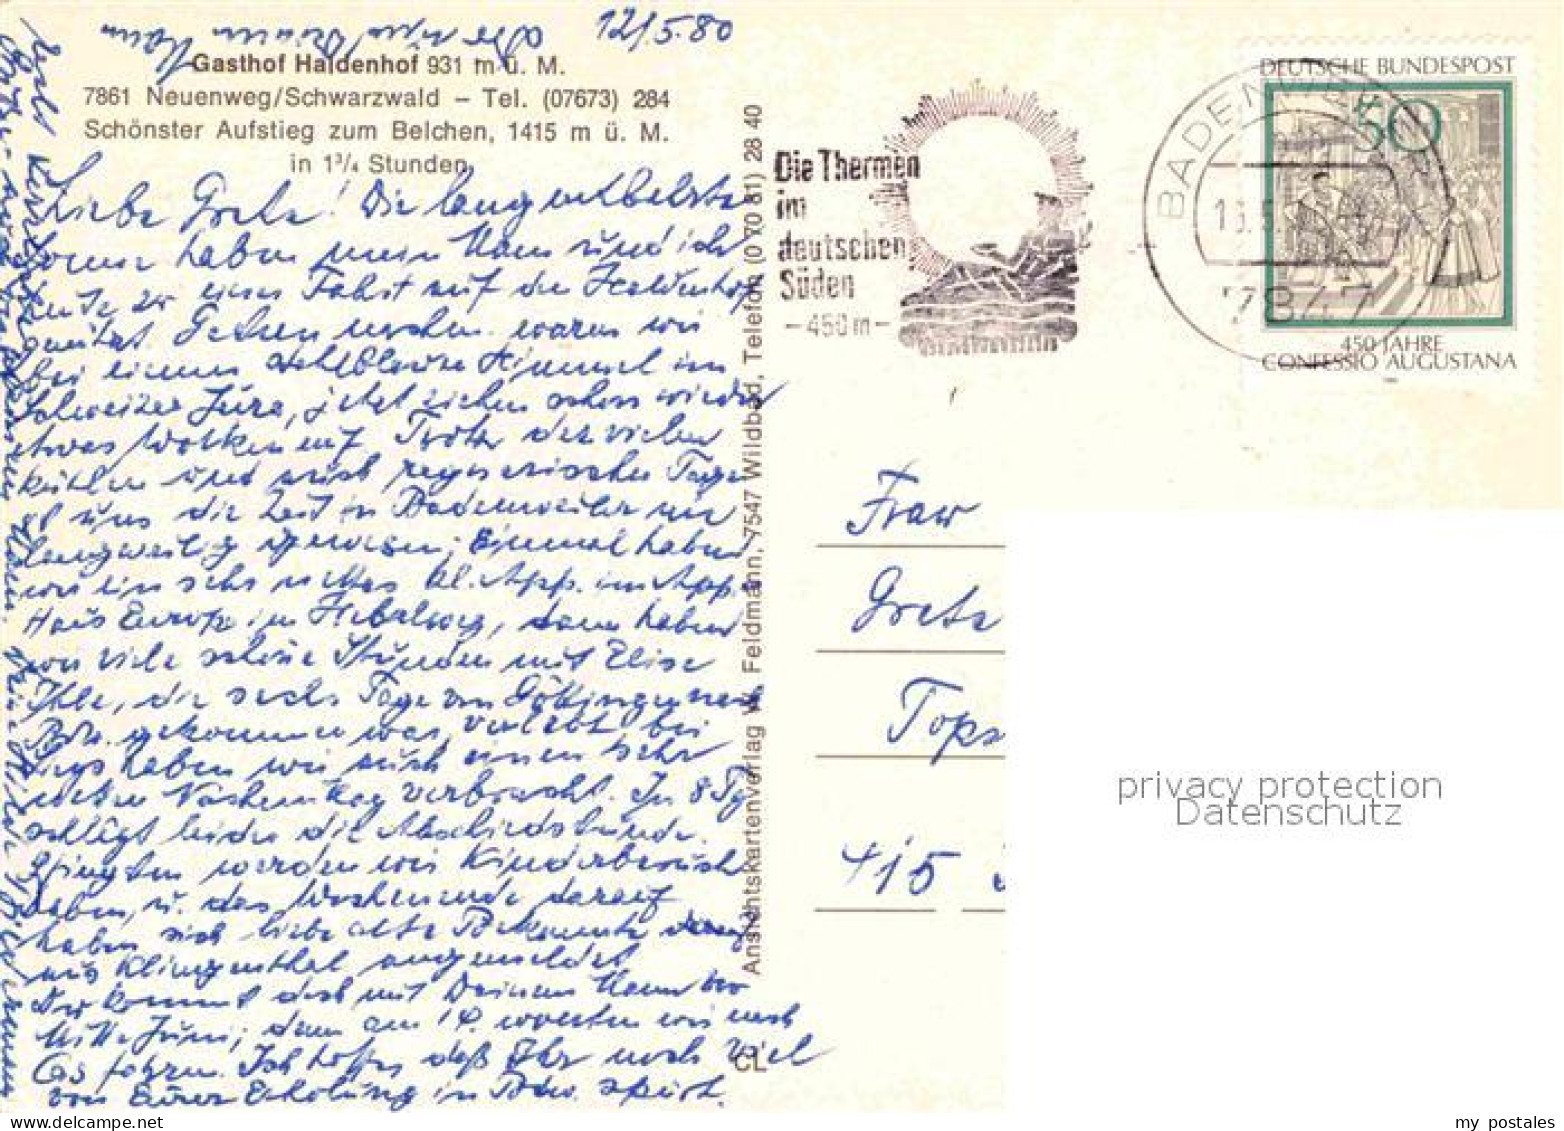 12/5.80
Gasthof Haldenhof 931 m ü. M.
7861 Neuenweg/Schwarzwald – Tel. (07673) 284
Schönster Aufstieg zum Belchen, 1415 m ü. M.
in 1³/₄ Stunden
Liebe Grete! Die lang entbehrte
Sonne haben mein Mann und ich
heute zu einer Fahrt auf den Haldenhof
genützt. Gestern waren wir
bei einem Himmel im
Schweizer Jura, jetzt ziehen schon wieder
etwas Wolken auf. Trotz der vielen
kühlen und auch regnerischen Tage
ist uns die Zeit in Badenweiler nie
langweilig gewesen; Einmal haben
wir ein sehr nettes kl. App. im App.
Haus Europa im Hebelweg, dann haben
wir viele schöne Stunden mit Elise
Ihle, die sechs Tage von Göttingen nach
Bdw. gekommen war, verlebt, bei
haben wir auch einen sehr
netten Nachmittag verbracht. In 8 Tg
schlägt leider die Abschiedsstunde.
Pfingsten werden wir Kinderbesuch
haben, u. das Wochenende darauf
haben sich liebe alte Bekannte
aus Klingenthal angemeldet
Du kommst doch mit Deinem Mann
Mitte Juni; denn am 14. wollten wir nach
fahren. Ich hoffe, daß Ihr noch viel
von Eurer Erholung in Bdw. spürt.
Ansichtskartenverlag W. Feldmann, 7547 Wildbad, Telefon (0 70 81) 28 40
CL
Die Thermen
im
deutschen
Süden
-450 m-
BADENWEILER
7847
DEUTSCHE BUNDESPOST
50
450 JAHRE
CONFESSIO AUGUSTANA
Frau
Grete
Tops
415
privacy protection
Datenschutz
my postales